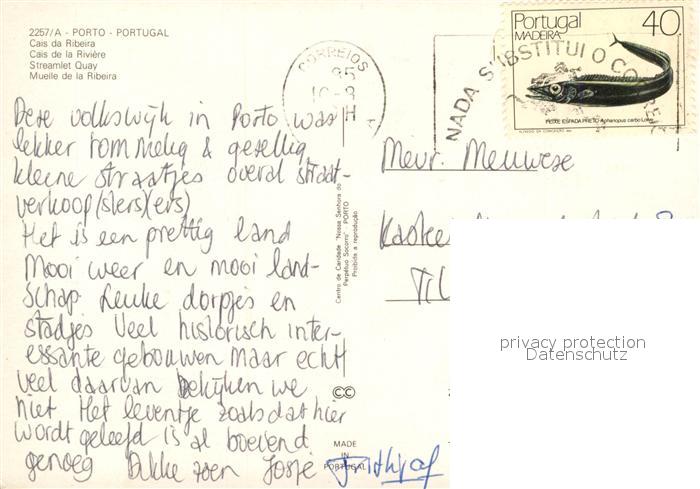 2257/A - PORTO - PORTUGAL
Cais da Ribeira
Cais de la Rivière
Streamlet Quay
Muelle de la Ribeira
CORREIOS
85
NADA SUBSTITUI O
Portugal 40
MADEIRA
PEIXE ESPADA PRETO Aphanopus carbo Lowe
Deze volkswijk in Porto was
lekker rommelig & gezellig
kleine straatjes overal straat-
verkoop(sters)(ers)
Het is een prettig land
Mooi weer en mooi land-
schap Leuke dorpjes en
stadjes Veel historisch inter-
essante gebouwen Maar echt
veel daarvan bekijken we
niet Het leventje zoals dat hier
wordt geleefd is al boeiend
genoeg Dikke zoen Josje
Mevr. Meuwese
Centro de Caridade "Nossa Senhora do
Perpétuo Socorro" PORTO
Proibida a reprodução
CC
MADE
IN
PORTUGAL
privacy protection
Datenschutz